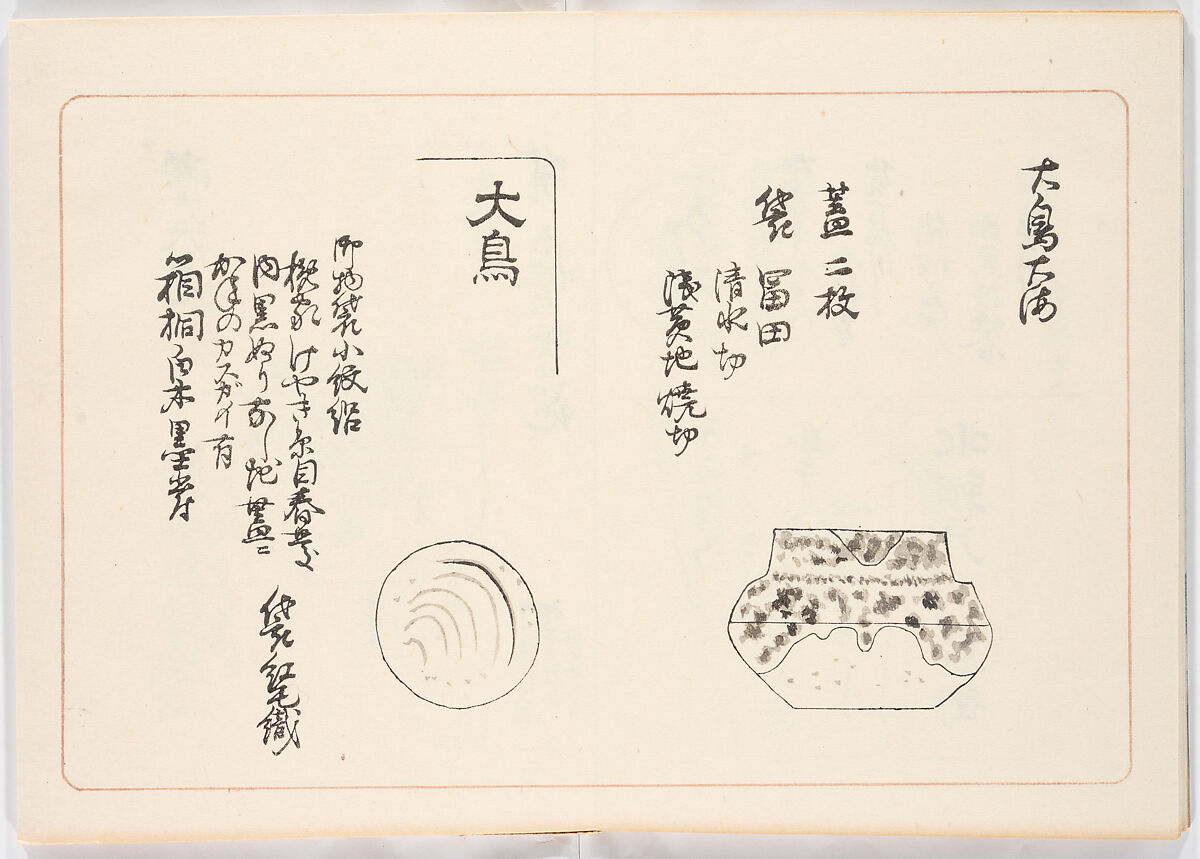 大島大海
蓋 二枚
袋 冨田
清水切
浅黄地焼切
大鳥
御物袋小紋絽
挽家けやき糸目春慶
内黒ぬりなし地蓋ニ
かねのカスガイ有
箱桐白木墨書付
袋紅毛織